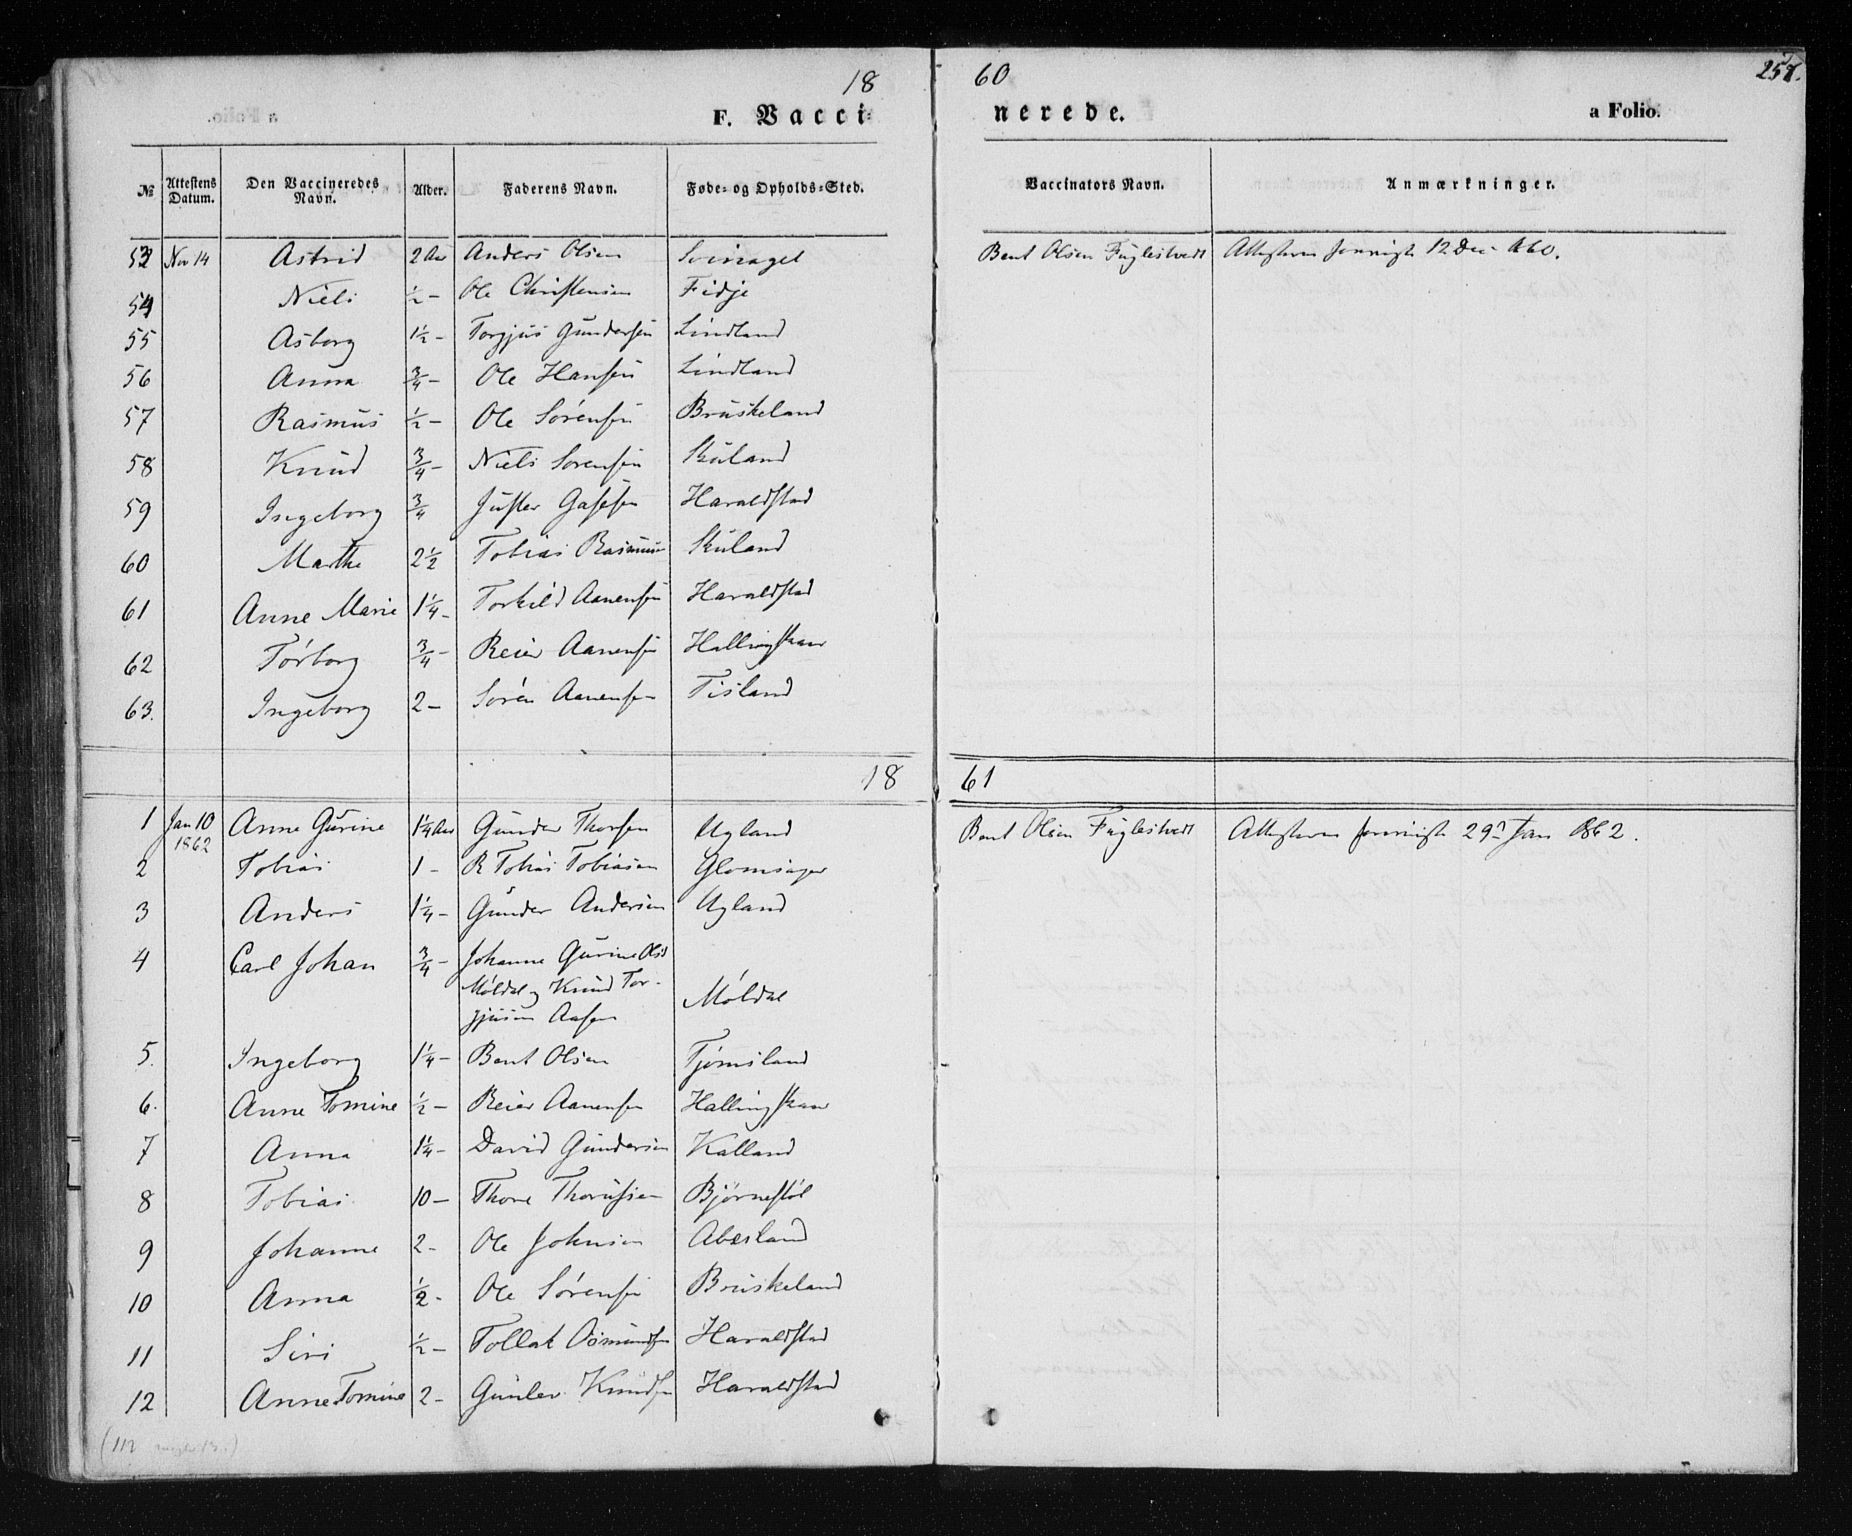 18 60 257.
F. Vaccinerede. a Folio.
№ Attestens Datum. Den Vaccineredes Navn. Alder. Faderens Navn. Føde- og Opholds-Sted. Vaccinators Navn. Anmærkninger.
53 Nov 14 Astrid 2 Aar Anders Olsen Bent Olsen Fuglestvedt Attesterne 12 Dec 1860.
54 Niels ½ – Ole Christensen Fidje
55 Asborg 1½ – Torgjus Gundersen Lindland
56 Anna ¾ – Ole Hansen Lindland
57 Rasmus ½ – Ole Sörensen Bruskeland
58 Knud ¾ – Niels Sorensen Skuland
59 Ingeborg ¾ Haraldstad
60 Marthe 2½ Tobias Rasmusen Skuland
61 Anne Marie 1¼ – Torkild Aanensen Haraldstad
62 Törborg ¾ – Reier Aanensen Hallingskaar
63. Ingeborg 2 – Sören Aanensen Tisland
18 61
1 Jan 10 1862 Anne Gurine 1¼ Aar Gunder Thorsen Ugland Bent Olsen Fuglestvedt Attesterne 29 Jan 1862.
2 Tobias 1 – R Tobias Tobiasen Glomsager
3 Anders 1¼ – Gunder Andersen Ugland
4 Carl Johan ¾ – Johanne Gurine Olsd
Möldal og Knud Tor-
gjusen Aasen Möldal
5. Ingeborg 1¼ – Bent Olsen Tjomsland
6. Anne Tomine ½ – Reier Aanensen Hallingskaar
7 Anna 1¼ – David Gundersen Kalland
8 Tobias 10 – Thore Björnestöl
9 Johanne 2 – Ole Johnsen Abesland
10 Anna ½ – Ole Sörensen Bruskeland
11 Siri ½ – Tollak Osmundsen Haraldstad
12 Anne Tomine 2 – Gunlev Knudsen Haraldstad